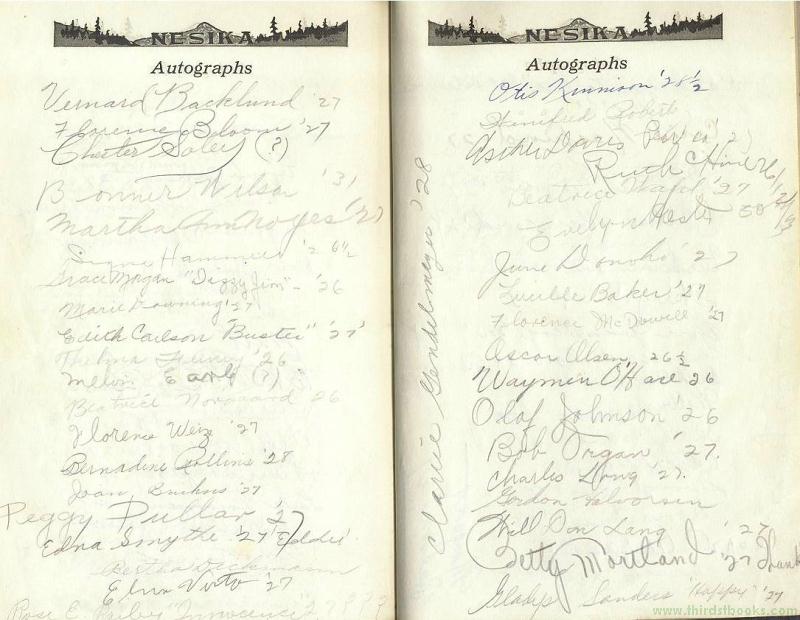 NESIKA
Autographs
Vernard Backlund '27
Florence Bloom '27
Chester Soley (?)
Bonner Wilson '31
Martha Ann Noyes '27
Signe Hammer '26½
Grace Morgan "Dizzy Jim" - '26
Marie Downing '27
Edith Carlson "Buster" '27
Thelma '26
Melvin Earl (?)
Beatrice Norgaard '26
Florence Weiz '27
Bernadine Collins '28
Joan '27
Peggy Pullar '27
Edna Smythe '27 "Eddie"
Bertha Deckmann
Elna Virto '27
Rose E. "Innocence" '27???
NESIKA
Autographs
Otis Kinnison '28½
Winifred
Esther Davis
Ruth Hine 26½
Beatrice '27
Evelyn 30
June Donoho '27
Lucille Baker '27
Florence McDowell '27
Oscar Olsen 26½
Waymen O'Hare 26
Olaf Johnson '26
Bob Organ '27.
Charles Long '27.
Gordon Halvorsen
Will Don Lang '27
Betty Mortland '27 Thanks
Gladys Sanders "Happy" '27
Clarice Gendelmeyer '28
www.thirdstbooks.com